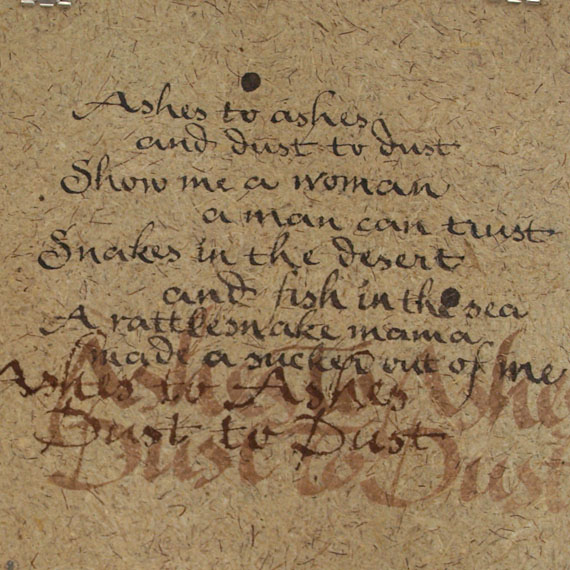 Ashes to ashes
and dust to dust
Show me a woman
a man can trust
Snakes in the desert
and fish in the sea
A rattlesnake mama
made a sucker out of me
Ashes to Ashes
Dust to Dust
Ashes to Ashes
Dust to Dust